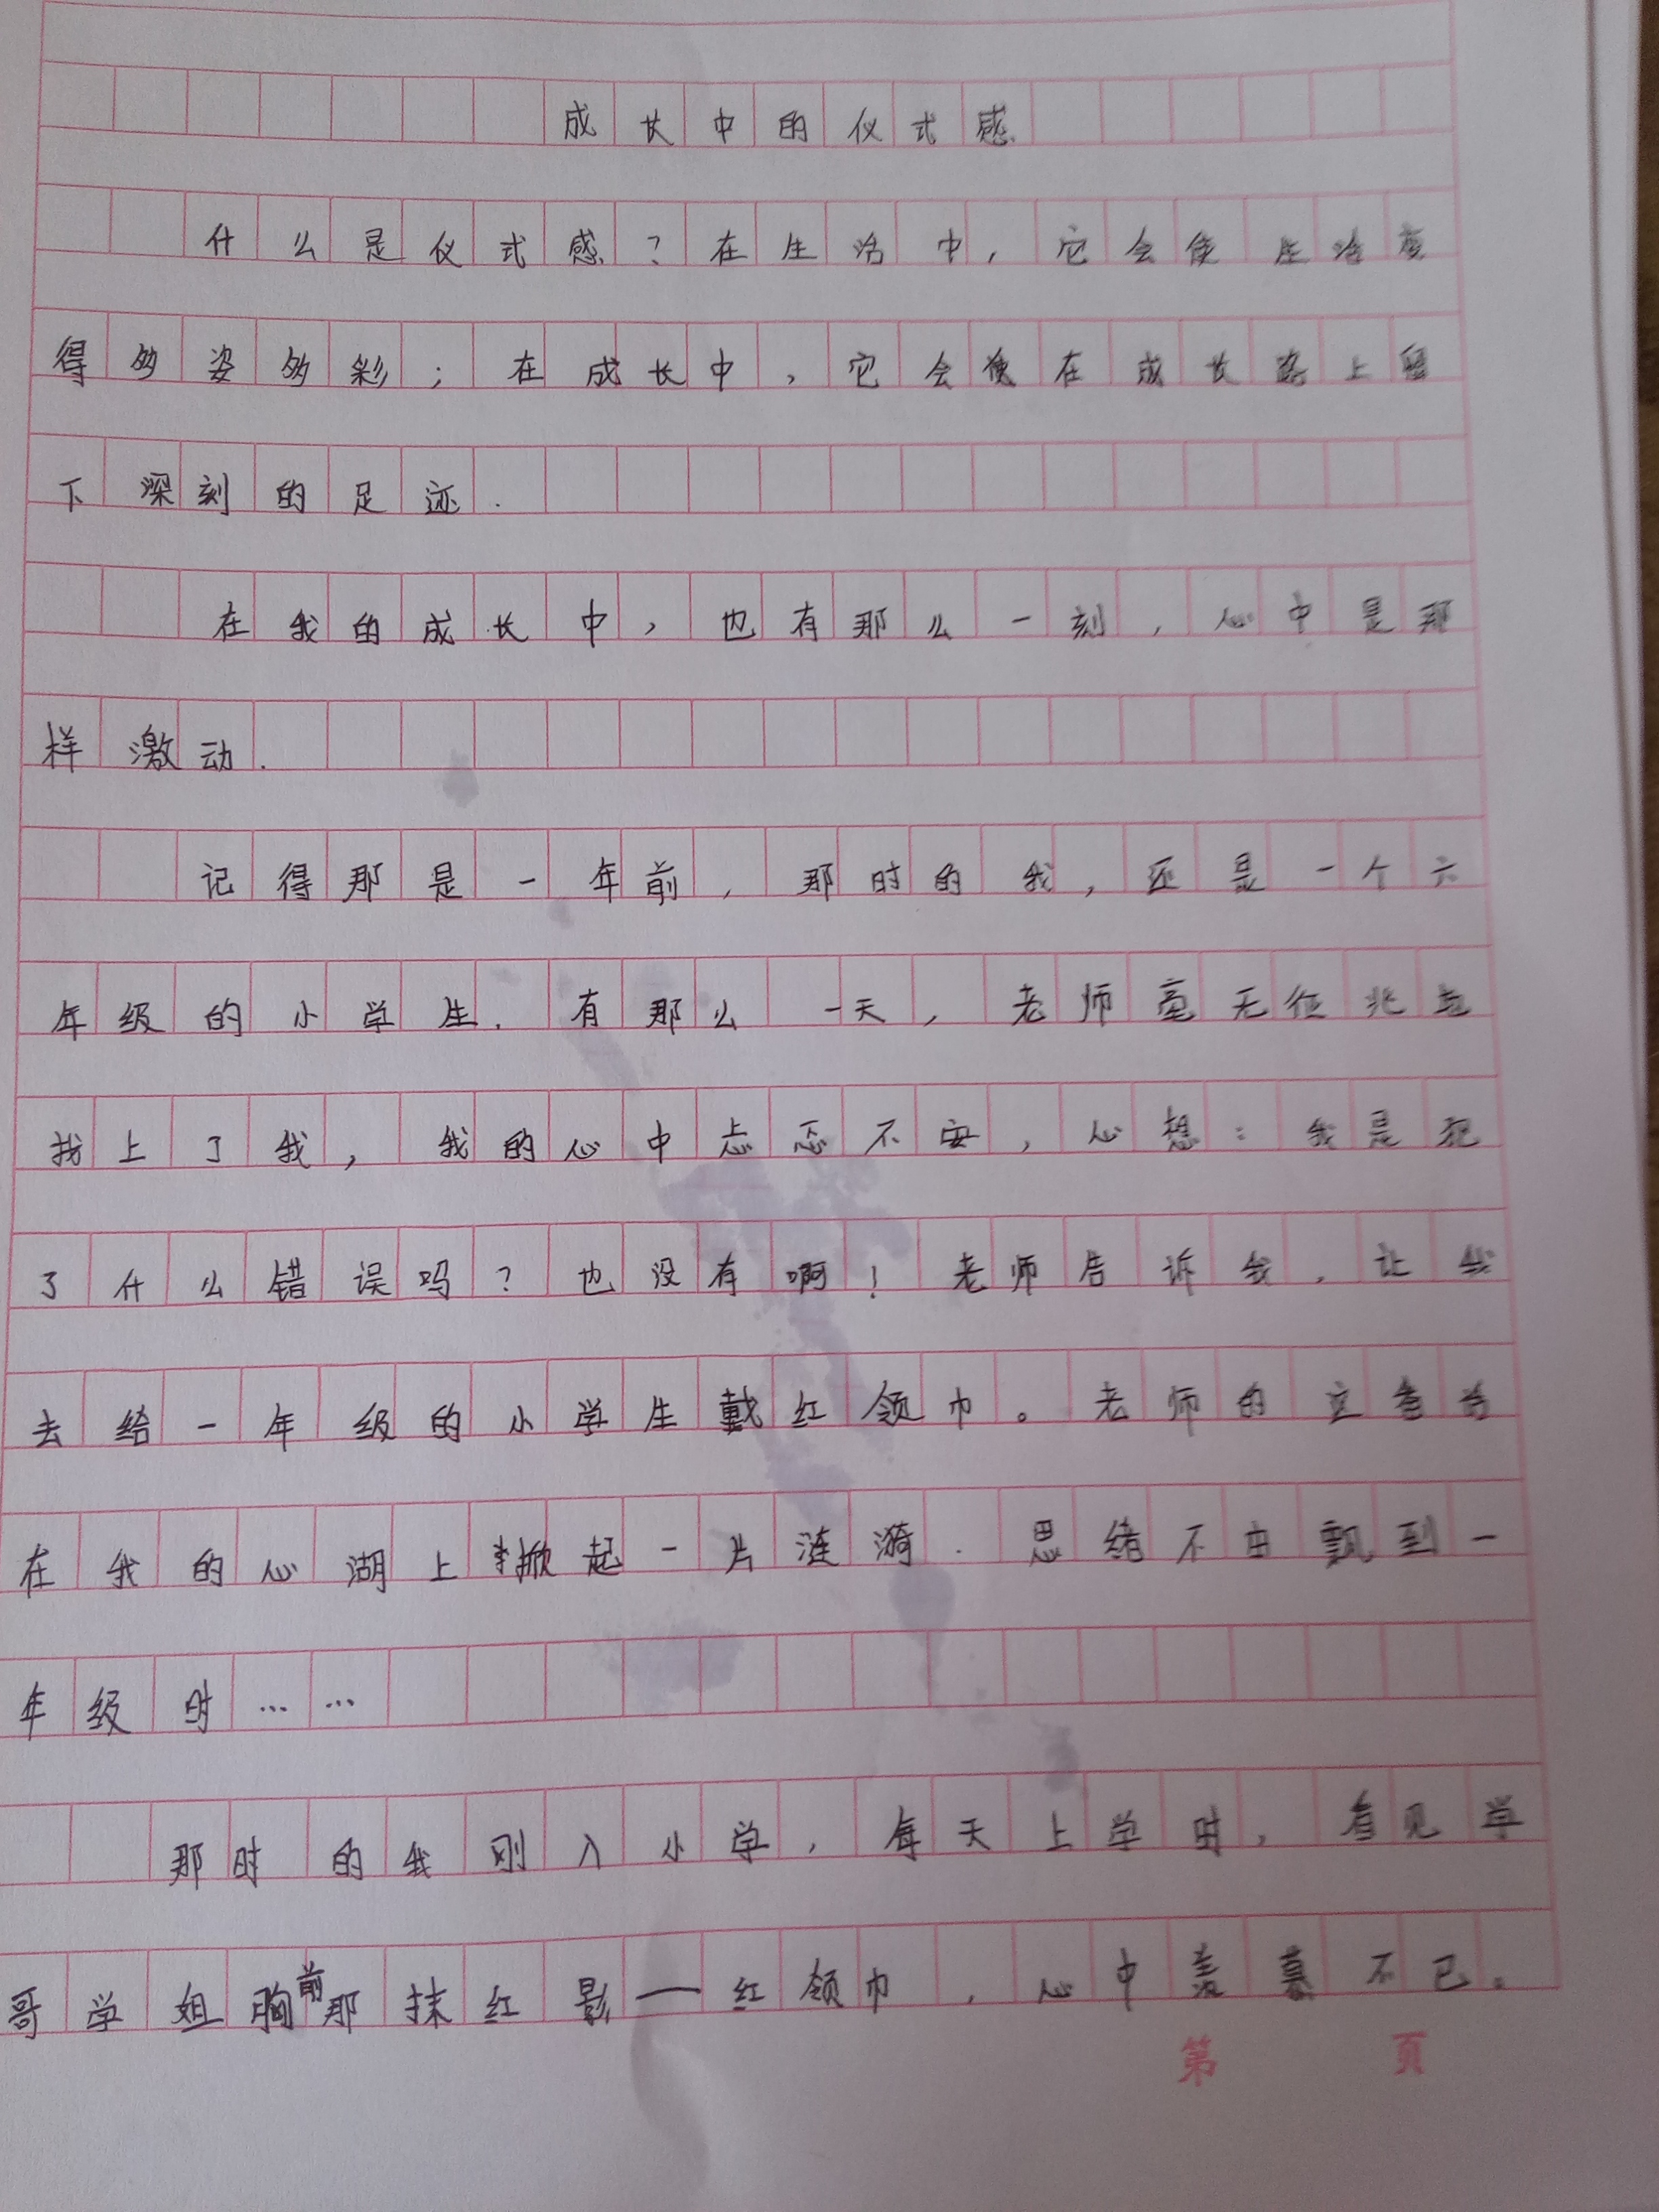 成长中的仪式感
什么是仪式感？在生活中，它会使生活变
得多姿多彩；在成长中，它会使在成长路上留
下深刻的足迹.
在我的成长中，也有那么一刻，心中是那
样激动.
记得那是一年前，那时的我，还是一个六
年级的小学生.有那么一天，老师毫无征兆地
找上了我，我的心中忐忑不安，心想：我是犯
了什么错误吗？也没有啊！老师告诉我，让我
去给一年级的小学生戴红领巾。老师的这番话
在我的心湖上掀起一片涟漪.思绪不由飘到一
年级时……
那时的我刚入小学，每天上学时，看见学
哥学姐胸前那抹红影——红领巾，心中羡慕不已。
第 页